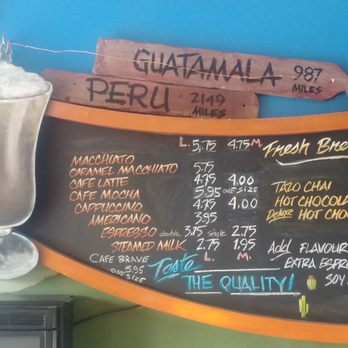 GUATAMALA 987 MILES
PERU 2149 MILES
L. 5,75 4.75 M.
MACCHIATO
CARAMEL MACCHIATO 5.75
CAFE LATTE 4.75 4.00
CAFE MOCHA 5.95 ONE SIZE
CAPPUCCINO 4.75 4.00
AMERICANO 3.95
ESPRESSO double 3.75 single 2.75
STEAMED MILK 2.75 1.95
L. M.
CAFE BRAVE
5.95
ONE SIZE
Taste
THE QUALITY!
Fresh Bre
TAZO CHAI
HOT CHOCOL
Deluxe HOT CHO
Add FLAVOUR
EXTRA ESPR
SOY